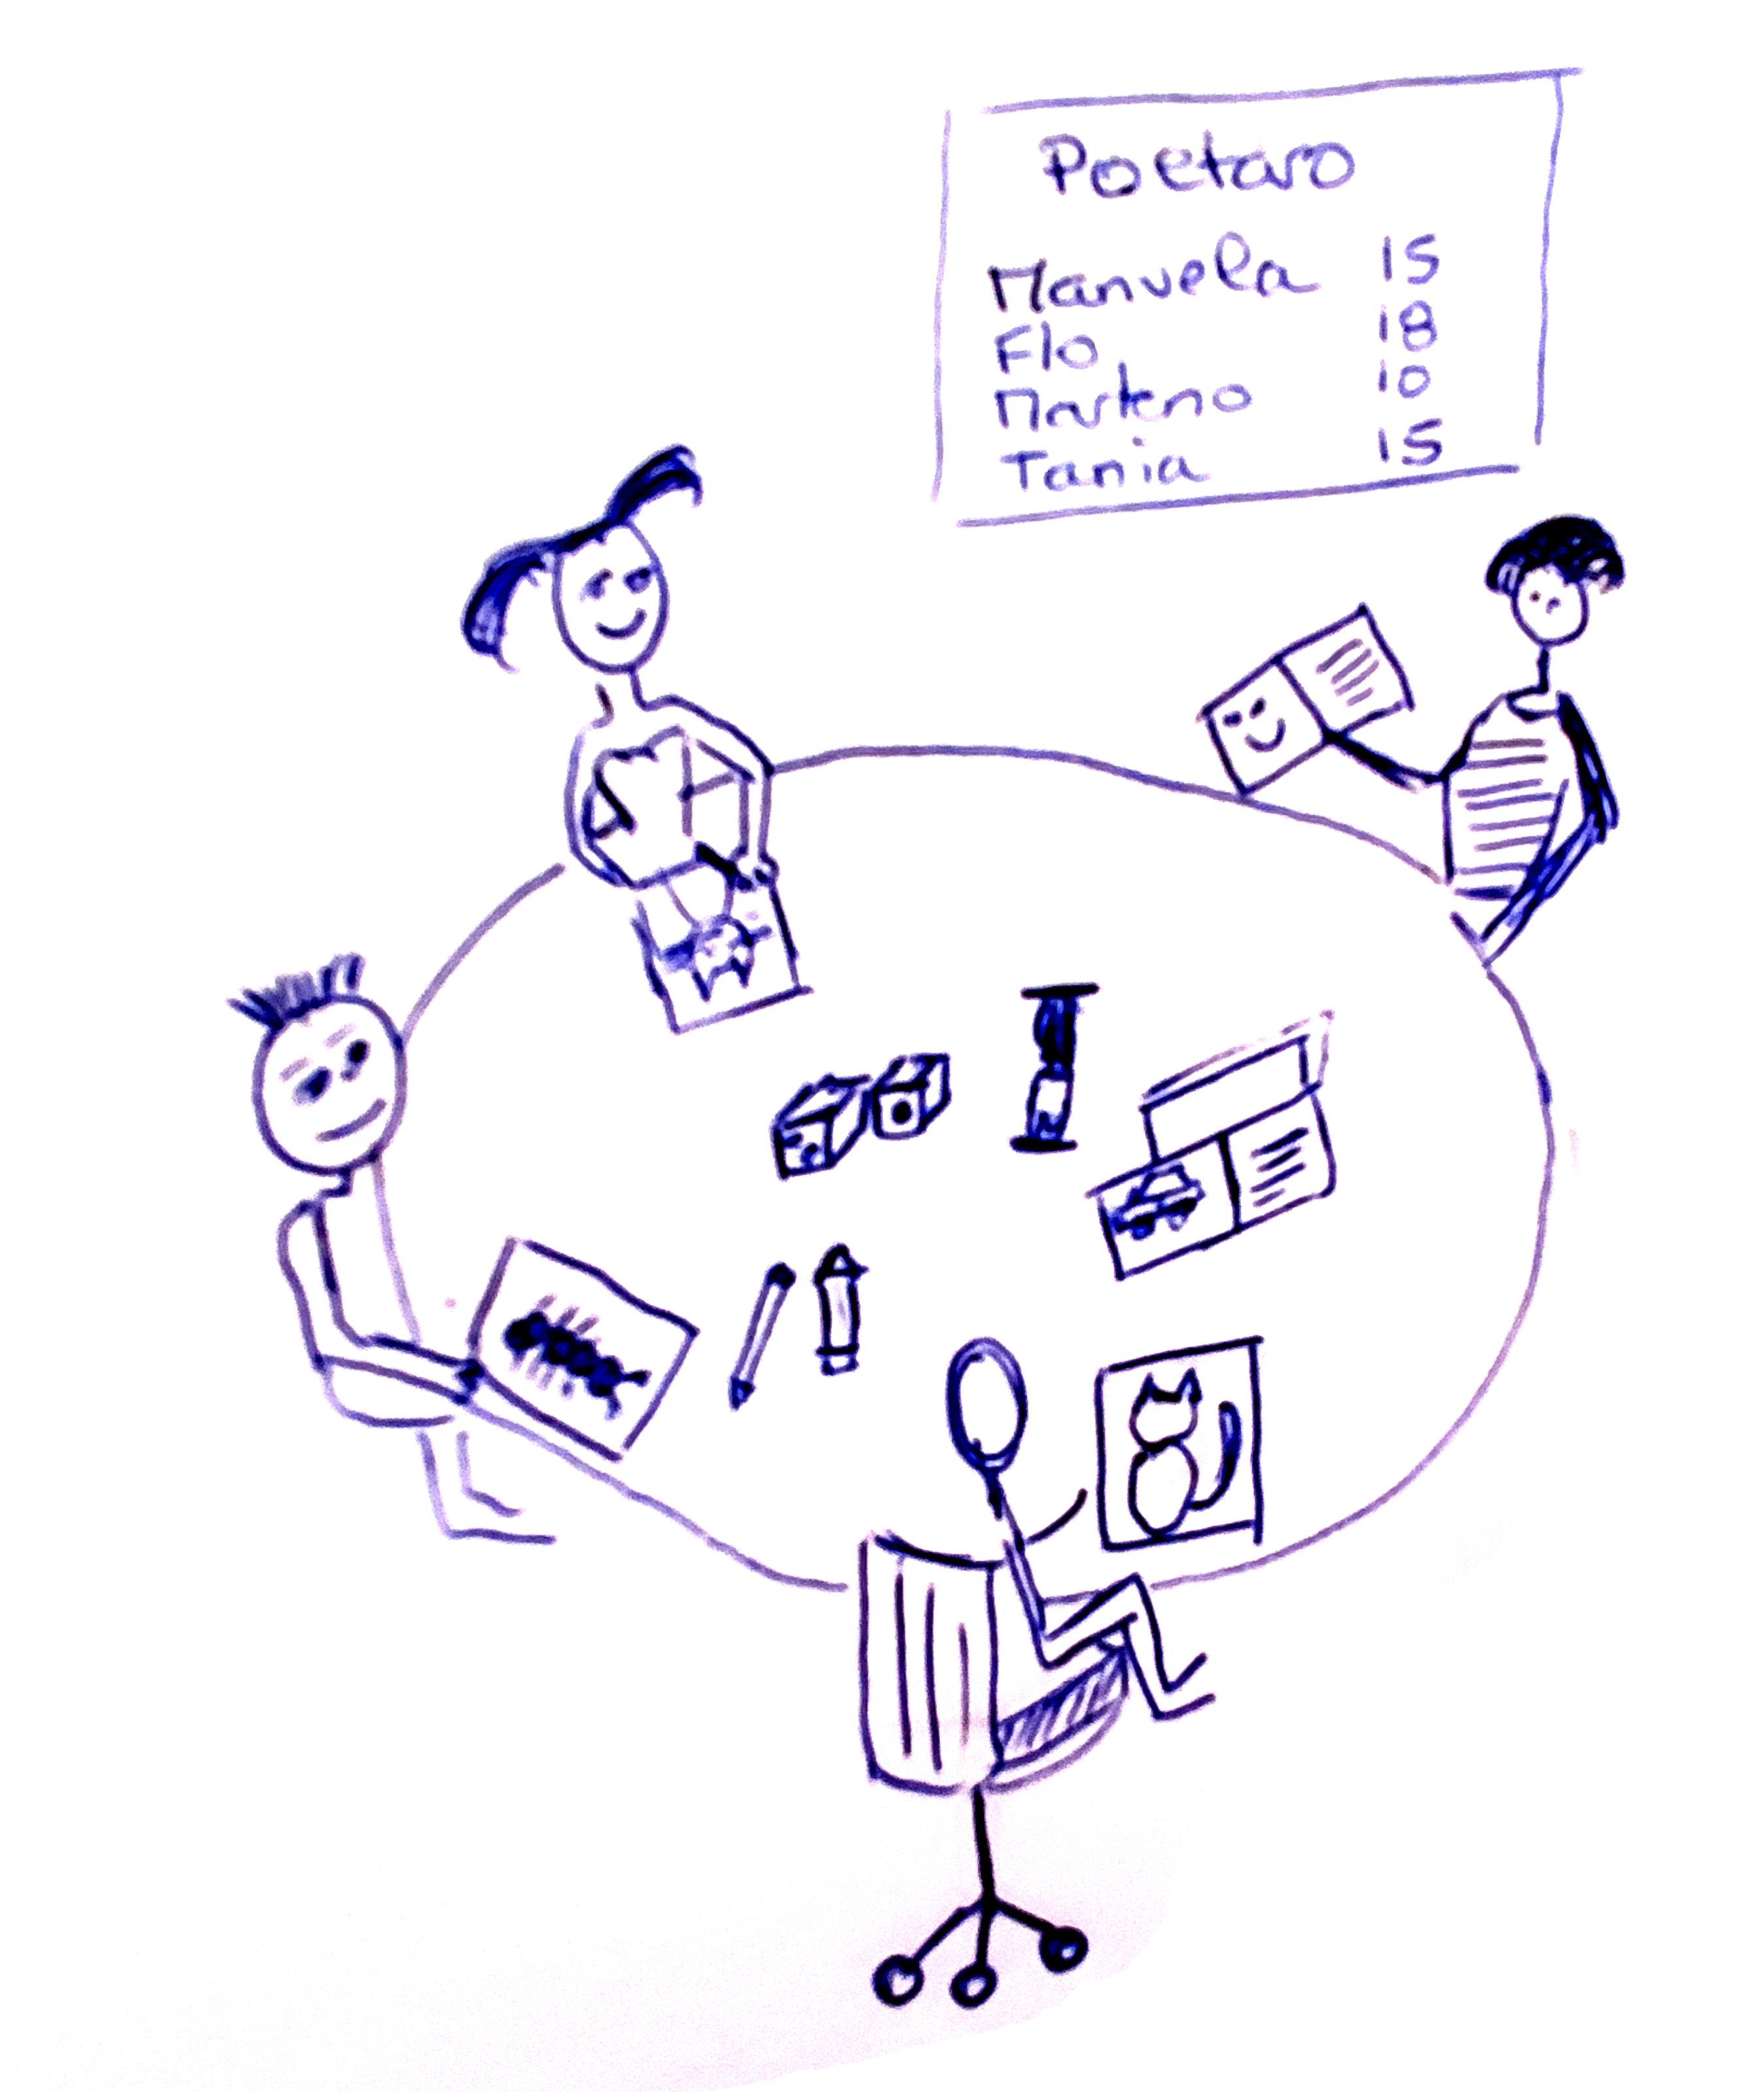 Poetaro
Manuela 15
Flo 18
10
Tania 15